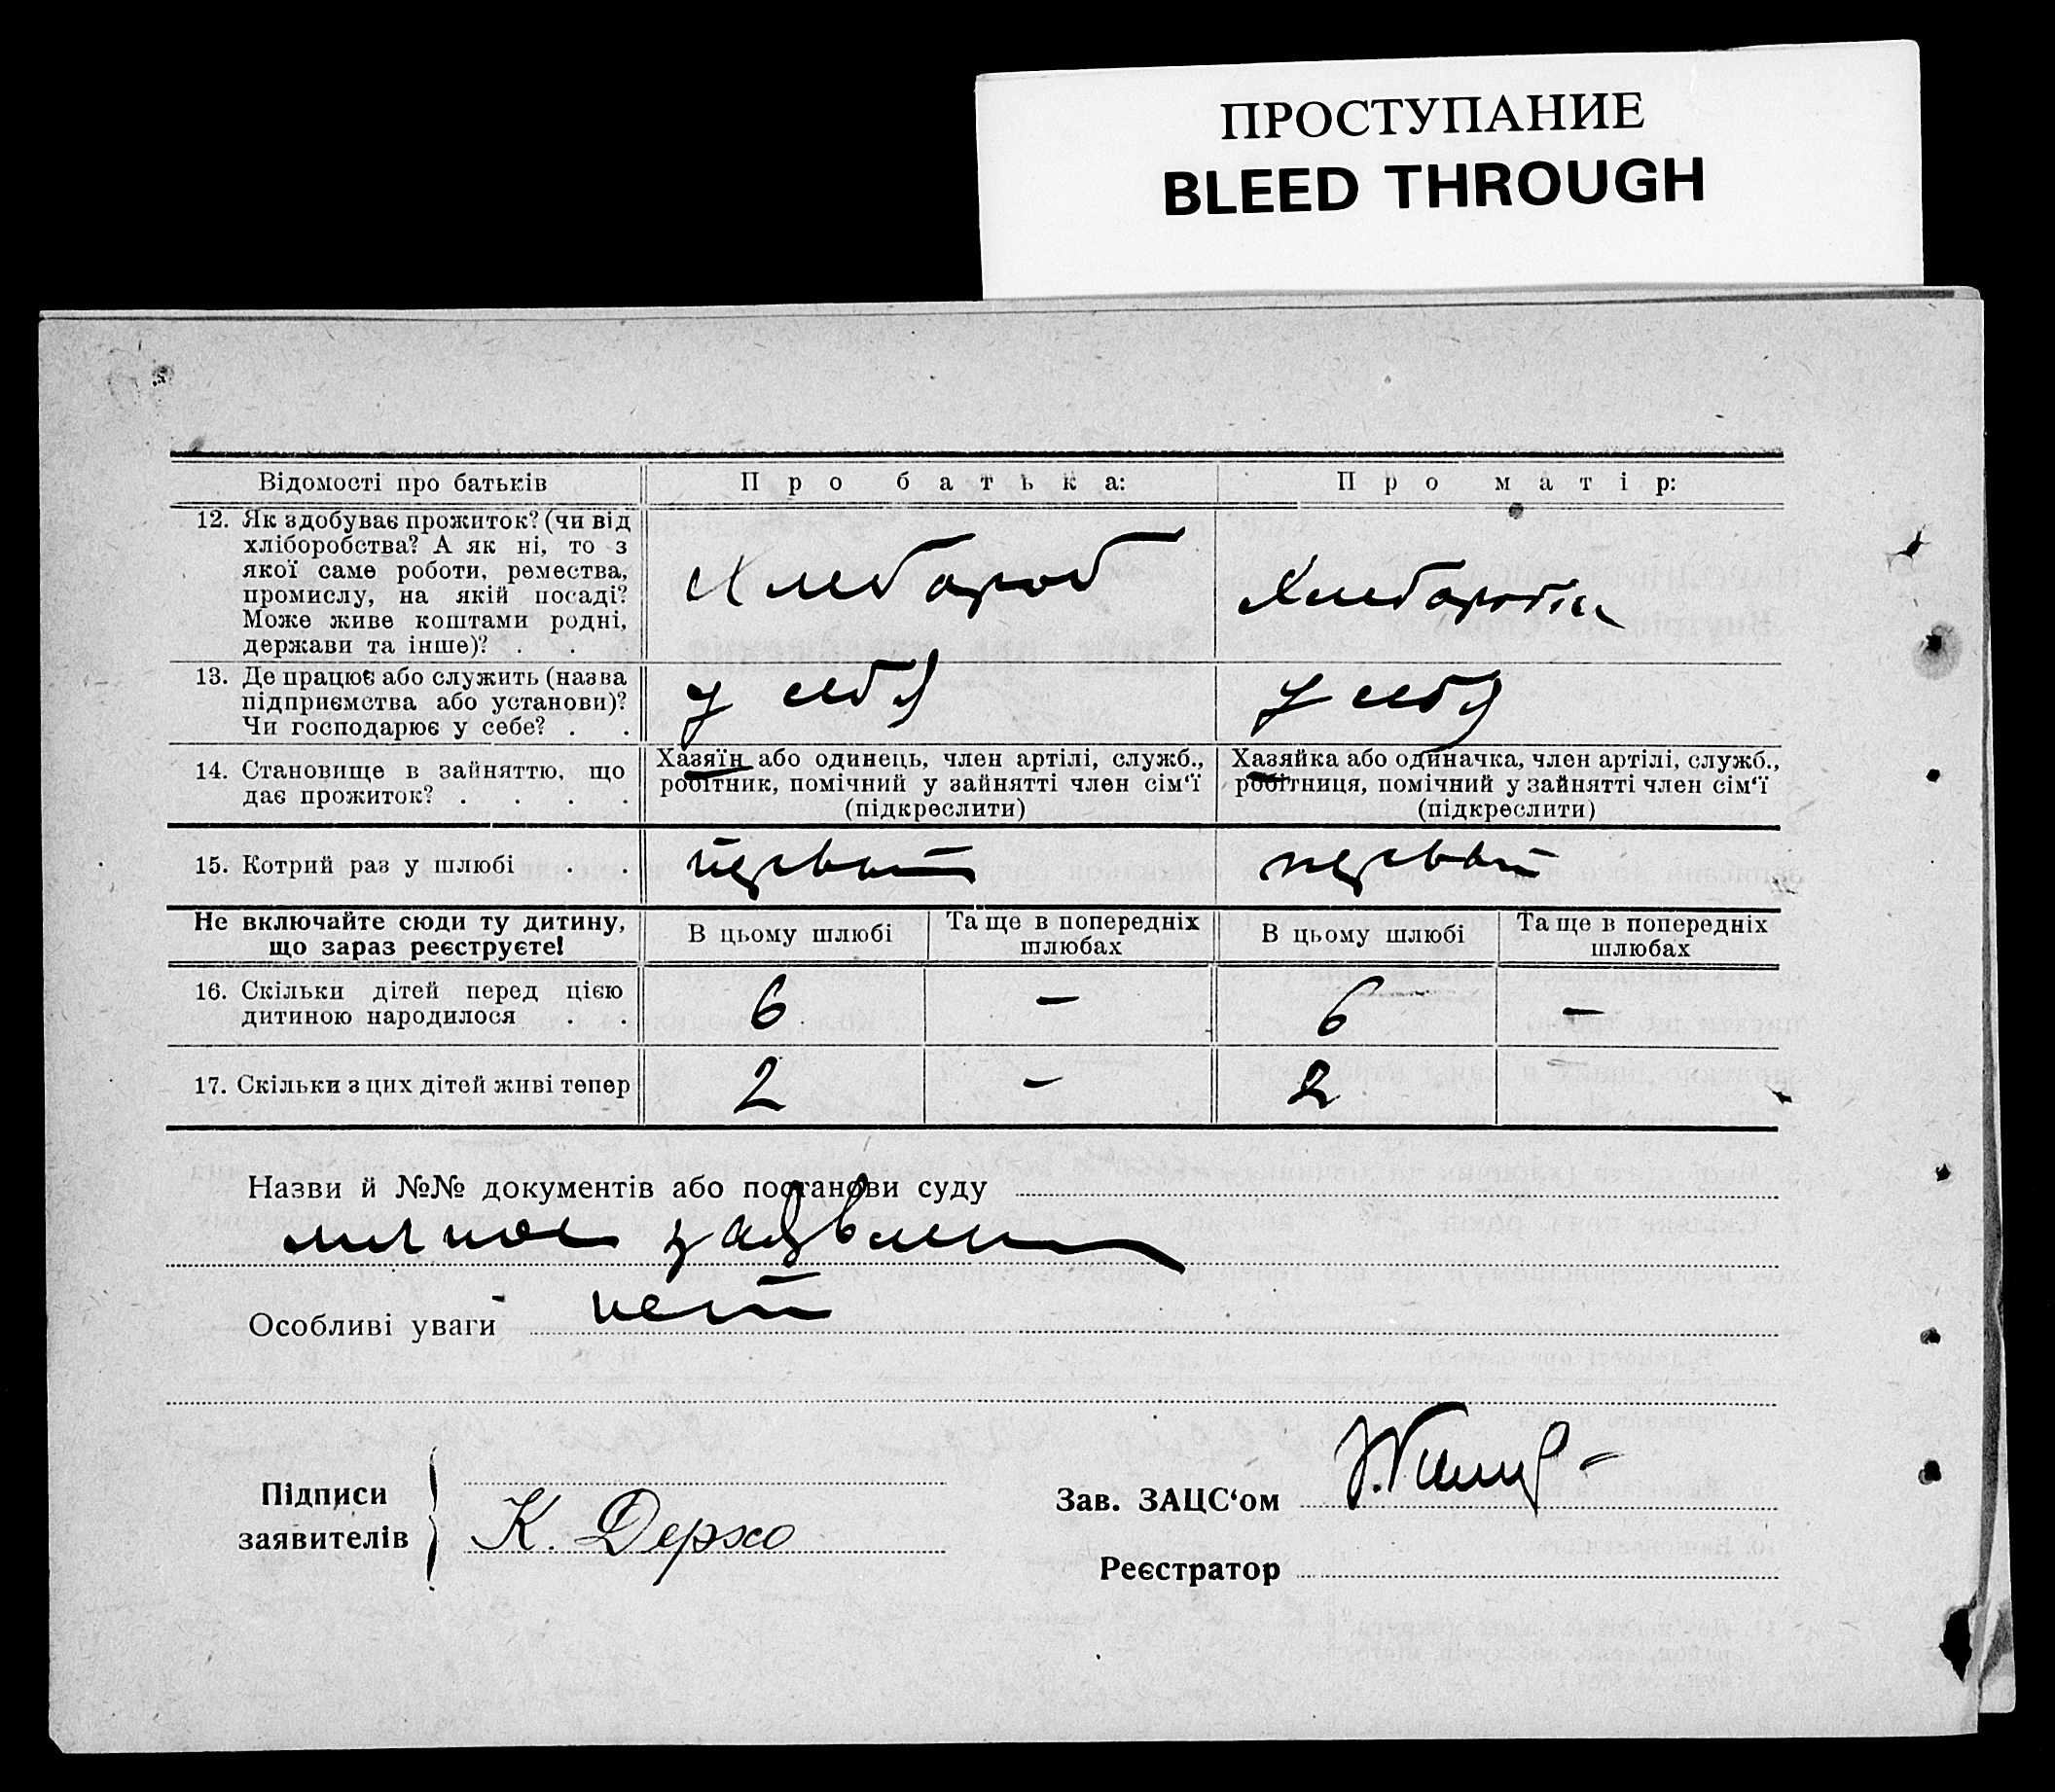 ПРОСТУПАНИЕ
BLEED THROUGH
Відомості про батьків
Про батька:
Про матір:
12. Як здобуває прожиток? (чи від
хліборобства? А як ні, то з
якої саме роботи, ремества,
промислу, на якій посаді?
Може живе коштами родні,
держави та інше)? . .
Хлебороб
Хлеборобка
13. Де працює або служить (назва
підприємства або установи)?
Чи господарює у себе? . .
у себя
у себя
14. Становище в зайняттю, що
дає прожиток? . . . .
Хазяїн або одинець, член артілі, служб.,
робітник, помічний у зайнятті член сім‘ї
(підкреслити)
Хазяйка або одиначка, член артілі, служб.,
робітниця, помічний у зайнятті член сім‘ї
(підкреслити)
15. Котрий раз у шлюбі . .
первый
первый
Не включайте сюди ту дитину,
що зараз реєструєте!
В цьому шлюбі
Та ще в попередніх
шлюбах
В цьому шлюбі
Та ще в попередніх
шлюбах
16. Скільки дітей перед цією
дитиною народилося . .
6
–
6
–
17. Скільки з цих дітей живі тепер
2
–
2
Назви й №№ документів або постанови суду
личное заявление
Особливі уваги нет
Підписи
заявителів
К. Держо
Зав. ЗАЦС‘ом
Реєстратор